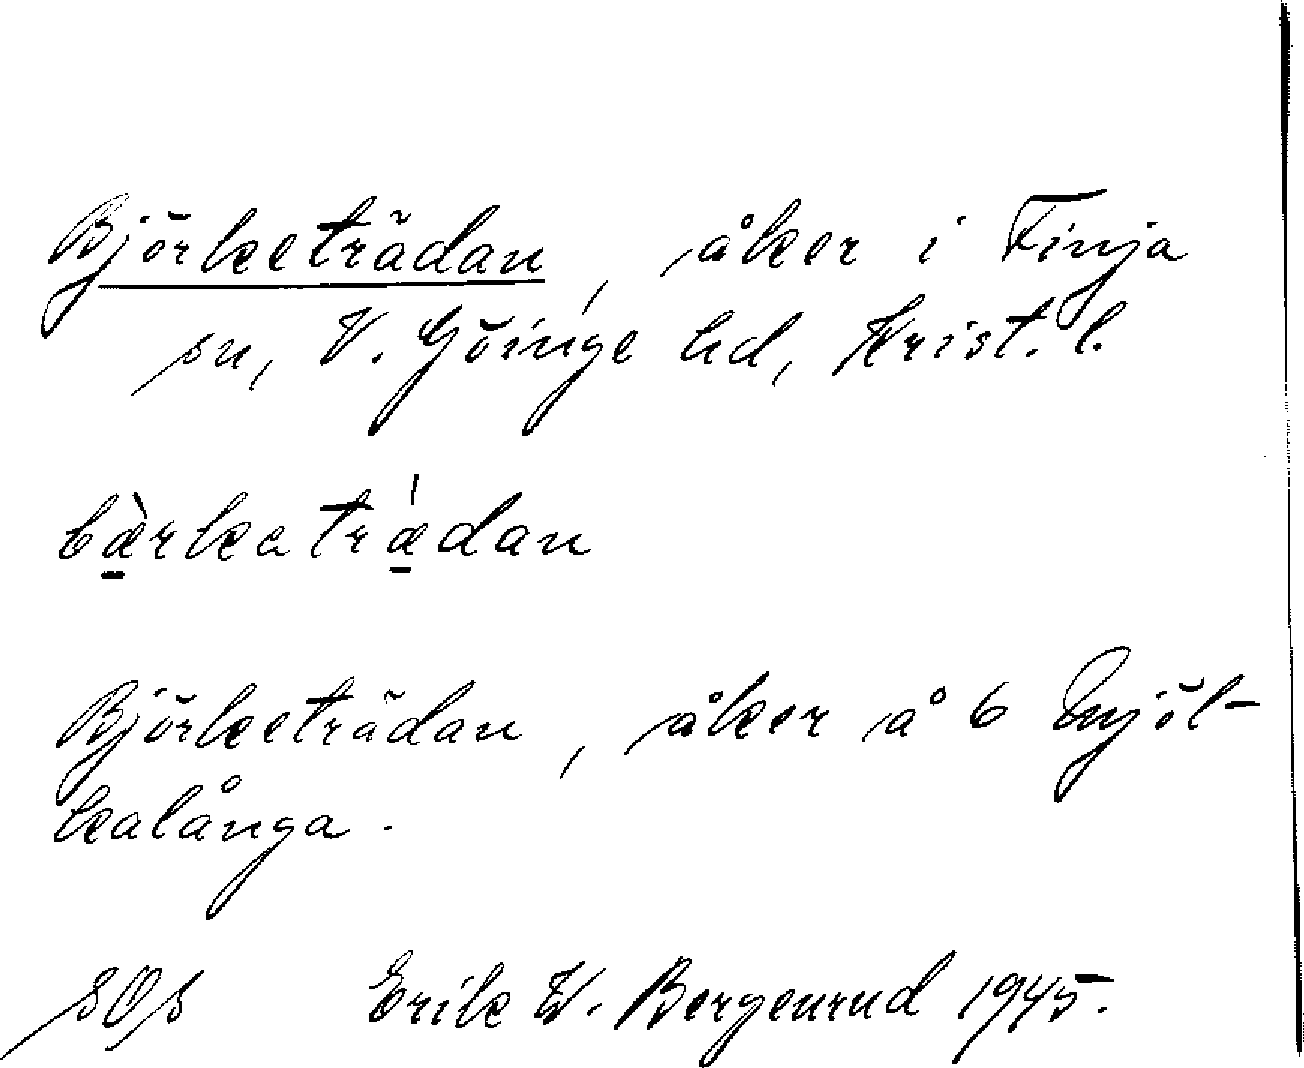 Björketrädan, åker i Finja
sn, V. Göinge hd, Krist. l.
bæ̠̀rkatrǽ̠dan
Björketrädan, åker å 6 Mjöl-
kalånga.
SOs Erik W. Bergenrud 1945.